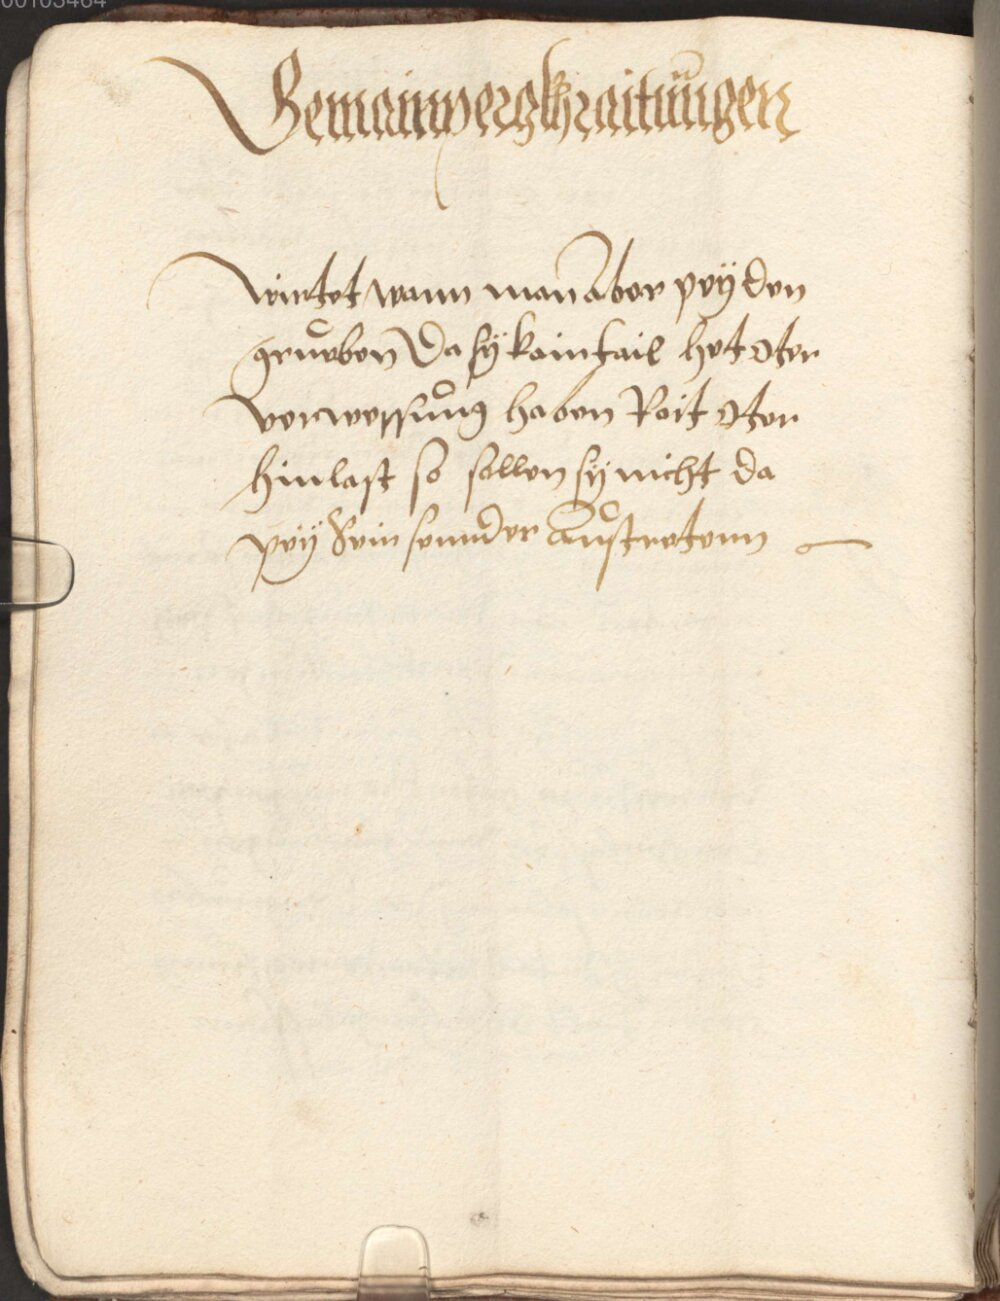 00103464
Gemainpergkhraitungen
wirtet wann man aber pey den
grueben Da sy kain tail het oder
verwessung haben Rait oder
hinlast so sollen sy nicht da
pey sein sunnder Austretenn